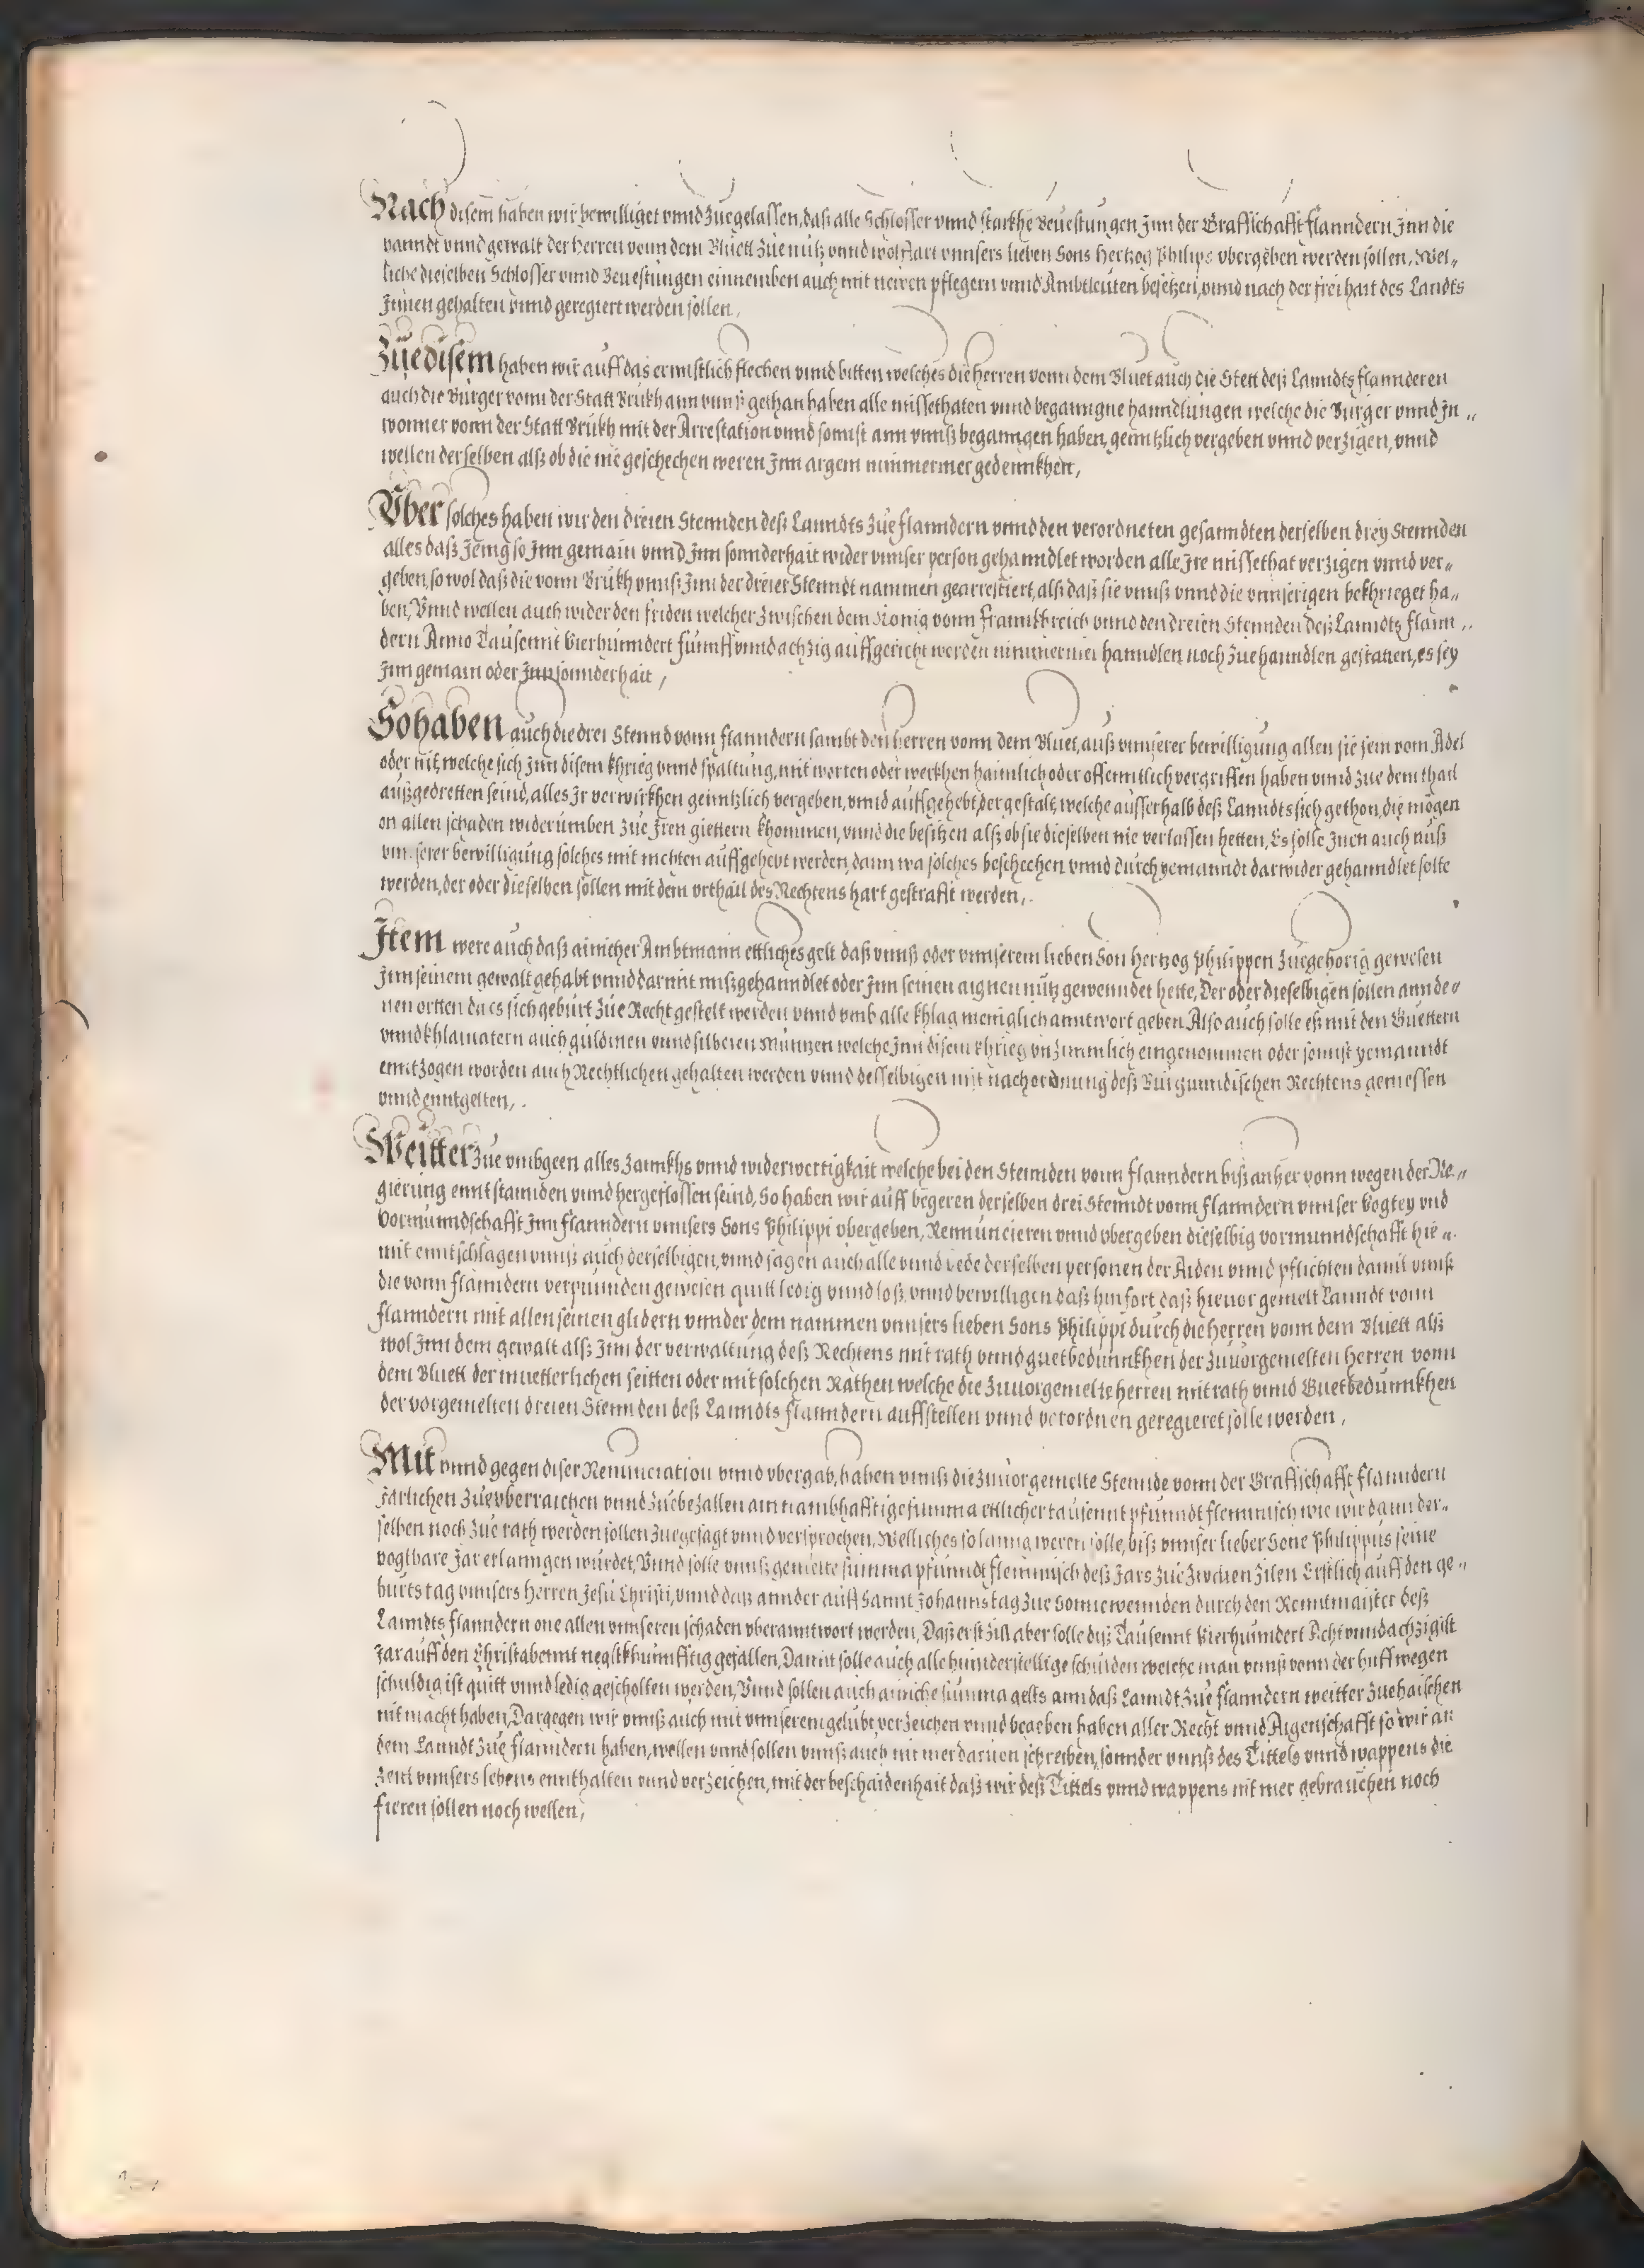 Nach disem haben wir bewilliget vnnd zuegelassen, daß alle Schlosser vnnd starckhe Veuestungen Jnn der Graffschafft flanndern Jnn die
hanndt vnnd gewalt der herren vonn dem Bluett zue nutz vnnd wolffart vnnsers lieben Sons hertzog Philips vbergeben werden sollen, Wel„
liche dieselben Schlosser vnnd Veuestungen einnemben auch mit neuen pflegern vnnd Ambtleuten besetzen, vnnd nach der freihait des Landts
Jnnen gehalten vnnd geregiert werden sollen,
Zue disem haben wir auff das ernnstlich flechen vnnd bitten welches die herren vonn dem Bluet auch die Stett deß Lanndts flannderen
auch die Burger vonn der Statt Brükh ann vnnß gethan haben alle missethaten vnnd beganngne hanndlungen welche die Burger vnnd Jn„
wonner vonn der Statt Brükh mit der Arrestation vnnd sonnst ann vnnß beganngen haben, genntzlich vergeben vnnd verzigen, vnnd
wellen derselben alß ob die nie geschechen weren Jnn argem nimmermer gedennkhen,
Vber solches haben wir den dreien Stennden deß Lanndts zue flanndern vnnd den verordneten gesanndten derselben drey Stennden
alles daß Jenig so Jnn gemain vnnd Jnn sonnderhait wider vnnser person gehanndlet worden alle Jre missethat verzigen vnnd ver„
geben, so wol daß die vonn Brükh vnnß Jnn der dreier Stenndt nammen gearrestiert, alß daß sie vnnß vnnd die vnnserigen bekhrieget ha„
ben, Vnnd wellen auch wider den friden welcher zwischen dem König vonn Frannkhreich vnnd den dreien Stennden deß Lanndts flann„
dern Anno Tausennt Vierhunndert fünnff vnnd achzig auffgericht werden nimmermer hanndlen noch zue hanndlen gestatten, es sey
Jnn gemain oder Jnn sonnderhait,
So haben auch die drei Stennd vonn flanndern sambt den herren vonn dem Bluet, auß vnnserer bewilligung allen sie sein vom Adel
oder nit, welche sich Jnn disem khrieg vnnd spaltung, mit worten oder werkhen haimlich oder offenntlich vergriffen haben vnnd zue dem thail
außgedretten seind, alles Jr verwürkhen genntzlich vergeben, vnnd auffgehebt, dergestalt, welche ausserhalb deß Lanndts sich gethon, die mögen
on allen schaden widerumben zue Jren giettern khommen, vnnd die besitzen alß ob sie dieselben nie verlassen hetten, Es solle Jnen auch auß
vnnserer bewilligung solches mit nichten auffgehebt werden, dann wa solches beschechen vnnd durch yemanndt darwider gehanndlet solte
werden, der oder dieselben sollen mit dem vrthail des Rechtens hart gestrafft werden,
Item were auch daß ainicher Ambtmann ettliches gelt daß vnnß oder vnnserem lieben Son hertzog Philippen zuegehörig gewesen
Jnn seinem gewalt gehabt vnnd darmit mißgehanndlet oder Jnn seinen aignen nutz gewenndet hette, Der oder dieselbigen sollen ann de„
nen ortten da es sich gebürt zue Recht gestelt werden vnnd vmb alle khlag meniglich anntwort geben Also auch solle eß mit den Guettern
vnnd khlainatern auch guldinen vnnd silberen Münnzen welche Jnn disem khrieg vnzimmlich eingenommen oder sonnst yemanndt
enntzogen worden auch Rechtlichen gehalten werden vnnd desselbigen mit nach ordnung deß Burgunndischen Rechtens geniessen
vnnd enntgelten,
Weitter zue vmbgeen alles Zannkhs vnnd widerwertigkait welche bei den Stennden vonn flanndern biß anher vonn wegen der Re„
gierung ennt stannden vnnd hergeflossen seind, So haben wir auff begeren derselben drei Stenndt vonn flanndern vnnser Vogtey vnd
Vormunndschafft Jnn flanndern vnnsers Sons Philippi vbergeben, Renuncieren vnnd vbergeben dieselbig vormunndschafft hie„
mit enntschlagen vnnß auch derselbigen, vnnd sagen auch alle vnnd iede derselben personen der Aiden vnnd pflichten damit vnnß
die vonn flanndern verpunnden gewesen quitt ledig vnnd loß, vnnd bewilligen daß hinfort daß hieuor gemelt Lanndt vonn
flanndern mit allen seinen glidern vnnder dem nammen vnnsers lieben Sons Philippi durch die herren vonn dem Bluett alß
wol Jnn dem gewalt alß Jnn der verwaltung deß Rechtens mit rath vnnd guetbedunnkhen der zuuorgemelten herren vonn
dem Bluett der muetterlichen seitten oder mit solchen Räthen welche die zuuorgemelte herren mit rath vnnd Guetbedunnkhen
der vorgemelten dreien Stennden deß Lanndts flanndern auffstellen vnnd verordnen geregieret solle werden,
Mit vnnd gegen diser Renunciation vnnd vbergab, haben vnnß die zuuorgemelte Stennde vonn der Graffschafft flanndern
Järlichen zue vberraichen vnnd zue bezallen ain nambhafftige summa ettlicher tausennt pfunndt flemmisch wie wir dann der„
selben noch zue rath werden sollen zuegesagt vnnd versprochen, Welliches so lanng weren solle, biß vnnser lieber Sone Philippus seine
vogtbare Jar erlanngen würdet, Vnnd solle vnnß gemelte summa pfunndt flemmisch deß Jars zue zwaien zilen Erstlich auff den ge„
burts tag vnnsers herren Jesu Christi, vnnd daß annder auff Sannt Johanns tag zue Sonnewennden durch den Renntmaister deß
Lanndts flanndern one allen vnnseren schaden vberanntwort werden, Daß erst zill aber solle diß Tausennt Vierhunndert Acht vnndachzigist
Jar auff den Christabennt negstkhunnfftig gefallen, Damit solle auch alle hinnderstellige schulden welche man vnnß vonn der huff wegen
schuldig ist quitt vnnd ledig gescholten werden, Vnnd sollen auch ainiche summa gelts ann daß Lanndt zue flanndern weitter zuehaischen
nit macht haben, Dargegen wir vnnß auch mit vnnserem gelübt verzeichen vnnd begeben haben aller Recht vnnd Aigenschafft so wir an
dem Lanndt zue flanndern haben, wellen vnnd sollen vnnß auch nit mer daruon schreiben, sonnder vnnß des Tittels vnnd wappens die
Zeit vnnsers lebens ennthalten vnnd verzeichen, mit der beschaidenhait daß wir deß Tittels vnnd wappens nit mer gebrauchen noch
fieren sollen noch wellen,